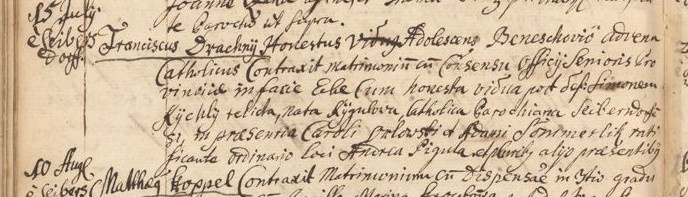 te Parochus ut supra.
15 July
è Seibers
dorff.
Franciscus Drachny Honestus Adolescens Beneschoviô advena
Catholicus Contraxit matrimoniũ cũ Consensu Officij Senioris Pro
vinciæ in facie Ecclæ Cum honesta vidua post def: Simonem
Rychly relicta, nata Rzigulova, Catholica Parochiana Seiberndorff
in præsentia Caroli Orlowski et Adami Sommerlik rati
ficante ordinario loci Andrea Pigula præsentibus
10 Aug
è Seibers
Mattheg Koppel Contraxit Matrimonium cũ Dispensaõe in gradu